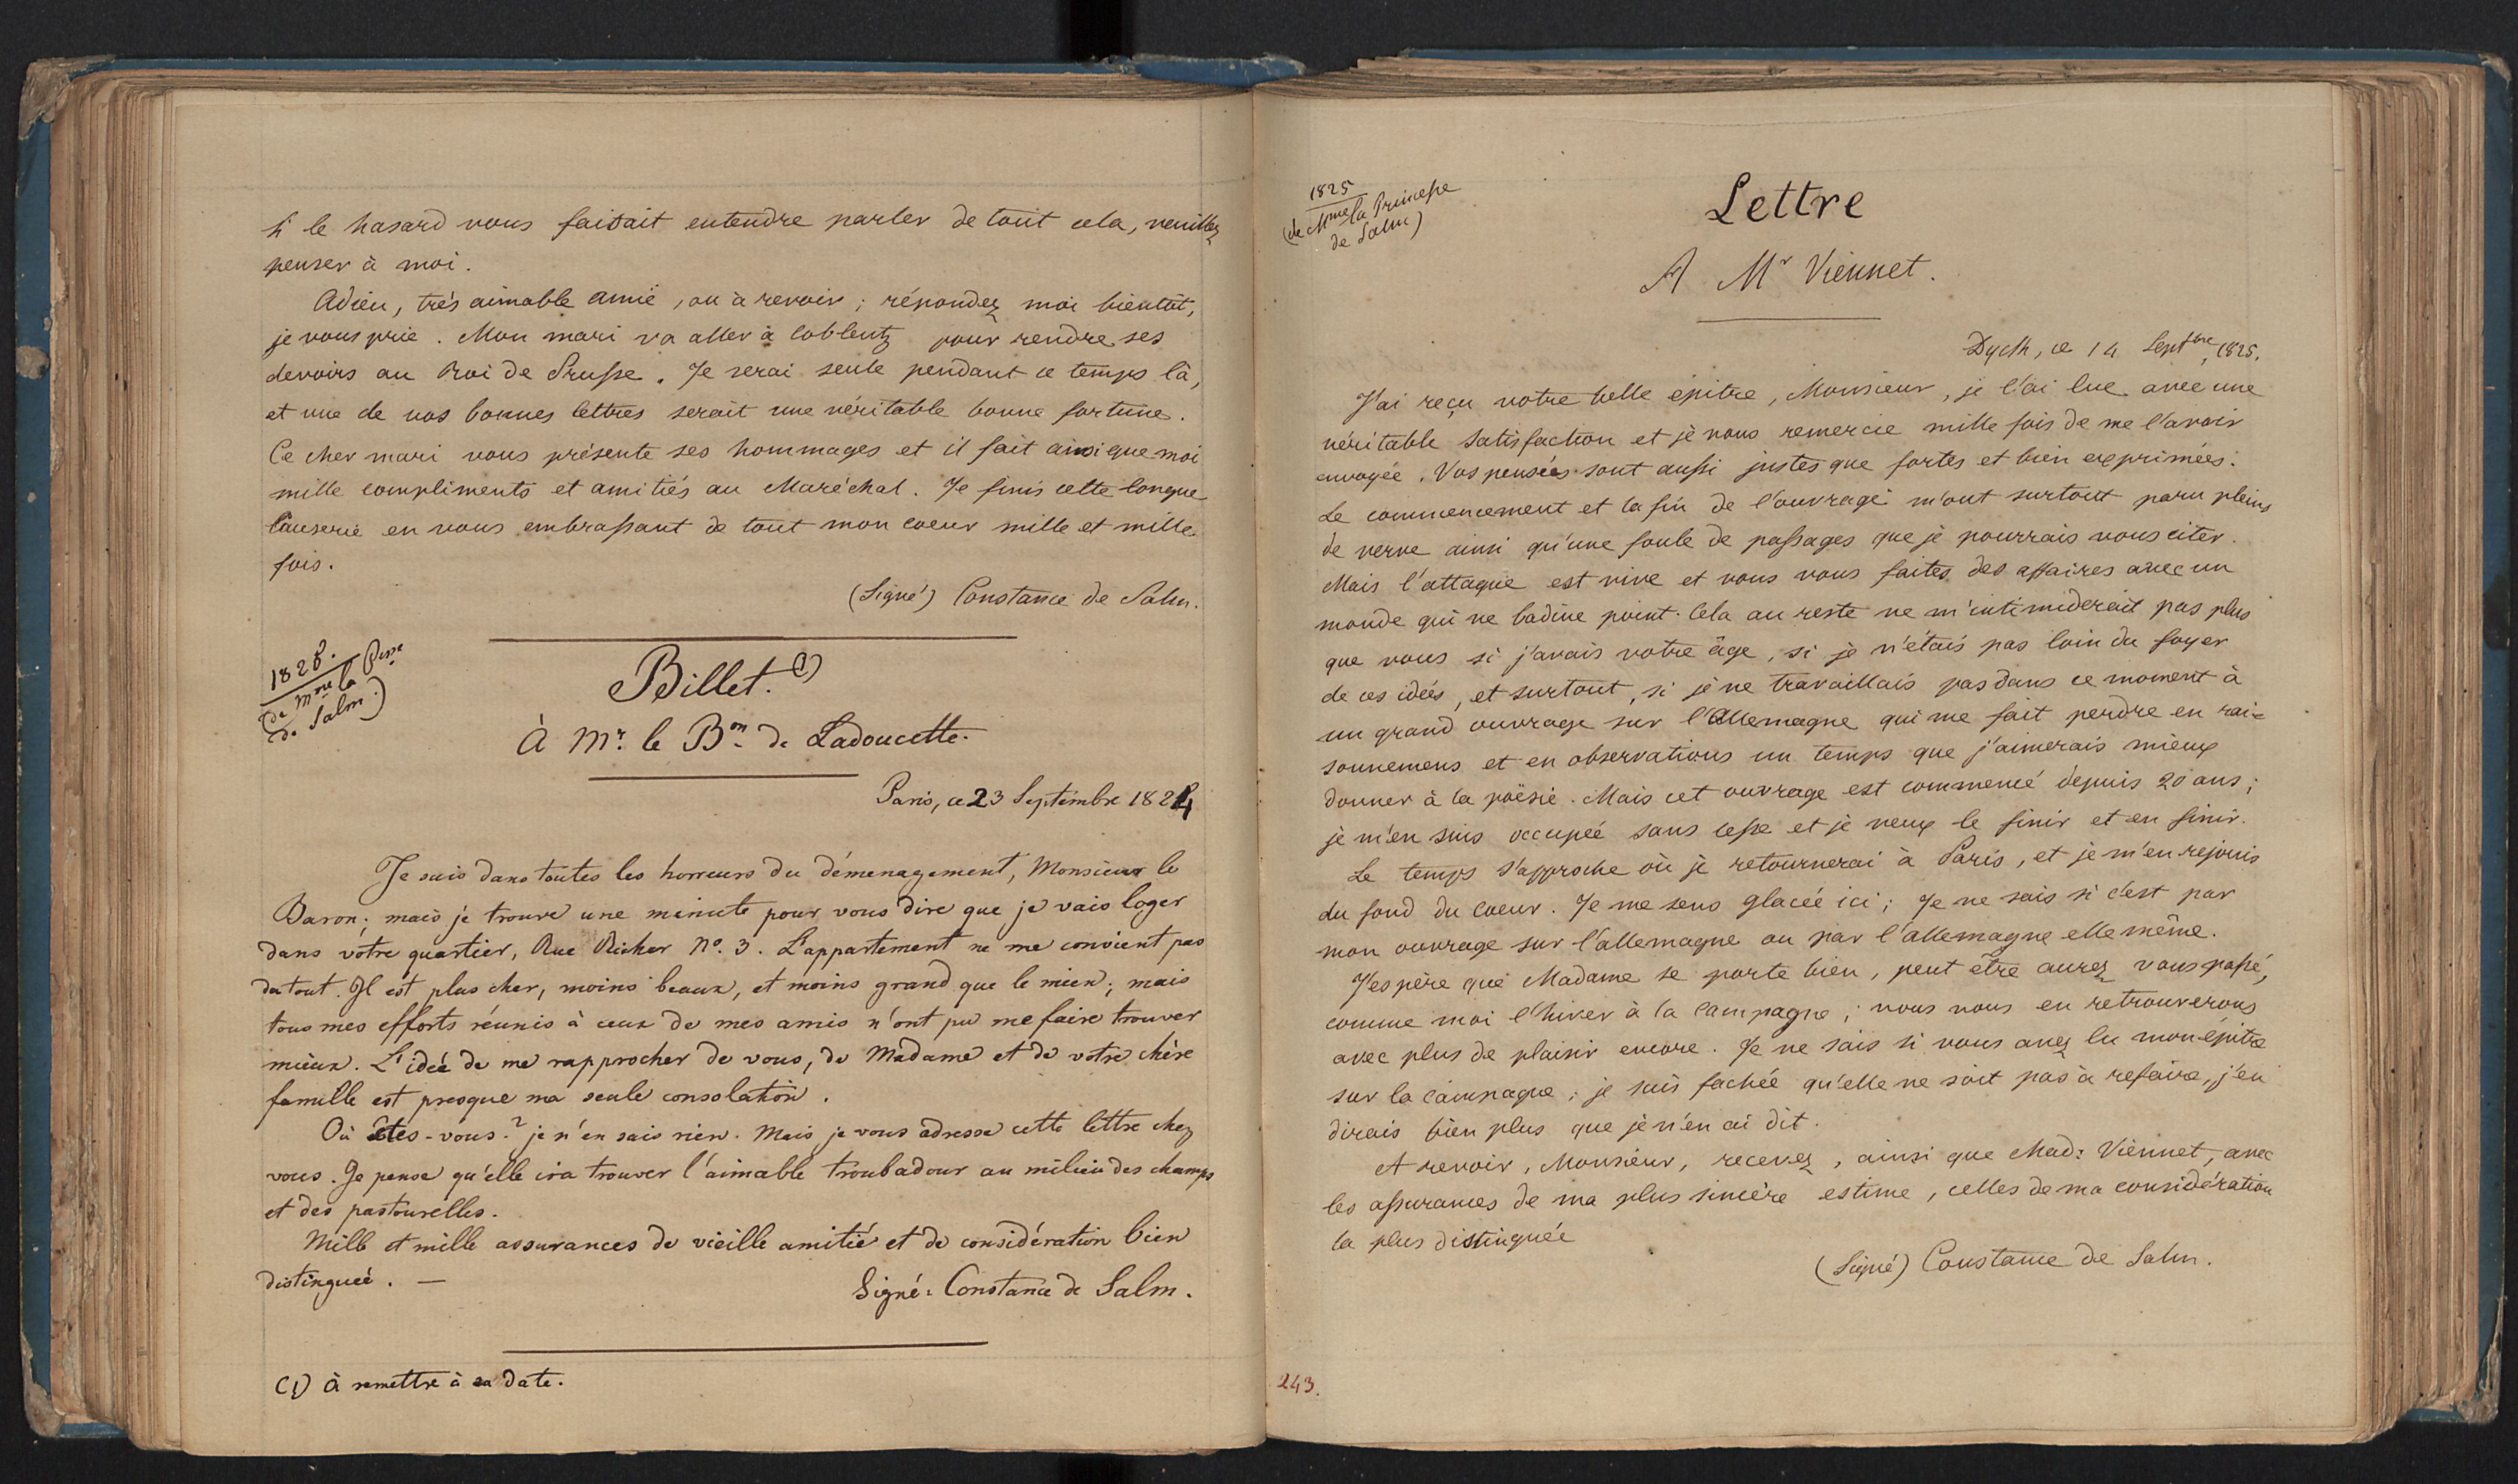 si le hasard vous faisait entendre parler de tout cela, veuillez
penser à moi.
Adieu, très aimable amie, ou à revoir; répondez moi bientôt,
je vous prie. Mon mari va aller à Coblentz pour rendre ses
devoirs au Roi de Prusse. Je serai seule pendant ce temps là,
et une de vos bonnes lettres serait une véritable bonne fortune.
Ce cher mari vous présente ses hommages et il fait ainsi que moi
mille compliments et amitiés au Maréchal. Je finis cette longue
causerie en vous embrassant de tout mon coeur mille et mille
fois.
(Signé) Constance de Salm.
1828.
(de Mme la Psse
de Salm.)
Billet. (1)
À Mr. le Bon. de Ladoucette.
Paris, ce 23 Septembre 1824
Je suis dans toutes les horreurs du démenagement, Monsieur le
Baron; mais je trouve une minute pour vous dire que je vais loger
dans vôtre quartier, Rue Richer No. 3. L'appartement ne me convient pas
du tout. Il est plus cher, moins beaux, et moins grand que le mien; mais
tous mes efforts réunis à ceux de mes amis n'ont pu me faire trouver
mieux. L'idée de me rapprocher de vous, de Madame et de votre chère
famille est presque ma seule consolation.
Où êtes-vous? je n'en sais rien. Mais je vous adresse cette lettre chez
vous. Je pense qu'elle ira trouver l'aimable troubadour au milieu des champs
et des pastourelles.
Mille et mille assurances de vieille amitié et de considération bien
distinguée. —
Signé: Constance de Salm.
(1) à remettre à sa date.
1825
(de Mme la Princesse
de Salm)
Lettre
A Mr Viennet.
Dyck, ce 14 Septbre, 1825.
J'ai reçu votre belle épitre, Monsieur, je l'ai lue avec une
véritable satisfaction et je vous remercie mille fois de me l'avoir
envoyée. Vos pensées sont aussi justes que fortes et bien exprimées.
Le commencement et la fin de l'ouvrage m'ont surtout paru pleins
de verve ainsi qu'une foule de passages que je pourrais vous citer.
Mais l'attaque est vive et vous vous faites des affaires avec un
monde qui ne badine point. Cela au reste ne m'intimiderait pas plus
que vous si j'avais votre âge, si je n'étais pas loin du foyer
de ces idées, et surtout, si je ne travaillais pas dans ce moment à
un grand ouvrage sur l'Allemagne qui me fait perdre en rai=
sonnemens et en observations un temps que j'aimerais mieux
donner à la poësie. Mais cet ouvrage est commencé depuis 20 ans;
je m'en suis occupée sans cesse et je veux le finir et en finir.
Le temps s'approche où je retournerai à Paris, et je m'en rejouis
du fond du coeur. Je me sens glacée ici; Je ne sais si c'est par
mon ouvrage sur l'allemagne ou par l'allemagne elle même.
J'espère que Madame se porte bien, peut être aurez vous passé,
comme moi l'hiver à la campagne; nous nous en retrouverons
avec plus de plaisir encore. Je ne sais si vous avez lu mon epitre
sur la campagne; je suis fachée qu'elle ne soit pas à refaire, j'en
dirais bien plus que je n'en ai dit.
A revoir, Monsieur, recevez, ainsi que Mad: Viennet, avec
les assurances de ma plus sincère estime, celles de ma considération
la plus distinguée
(Signé) Constance de Salm.
243.